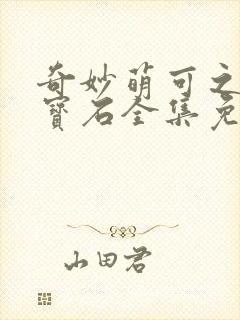 奇妙萌可之
寶石全集免
山田君